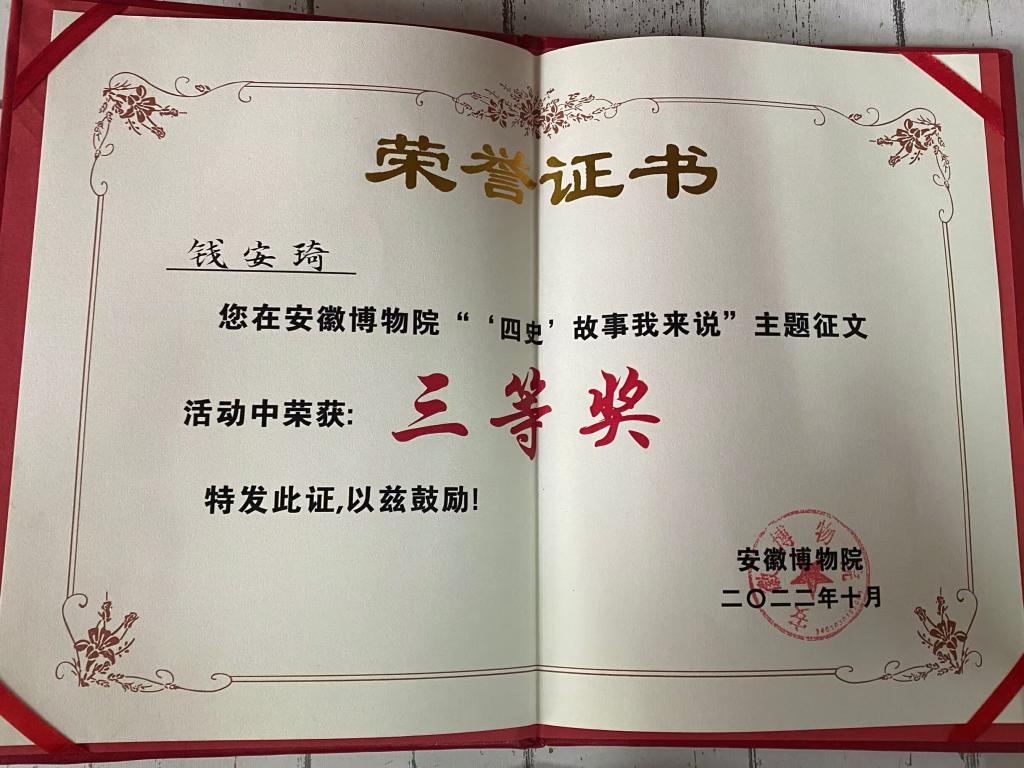 荣誉证书
钱安琦
您在安徽博物院“‘四史’故事我来说”主题征文
活动中荣获：三等奖
特发此证,以兹鼓励!
安徽博物院
二〇二二年十月
安徽博物院